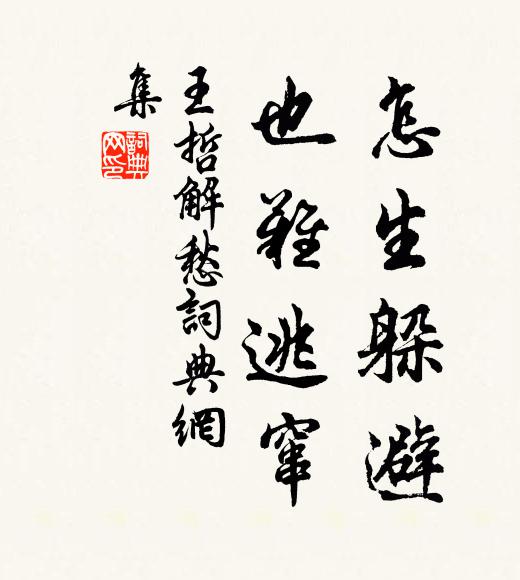 怎生躲避
也難逃竄
王哲解愁詞典網
集
詞典
网印